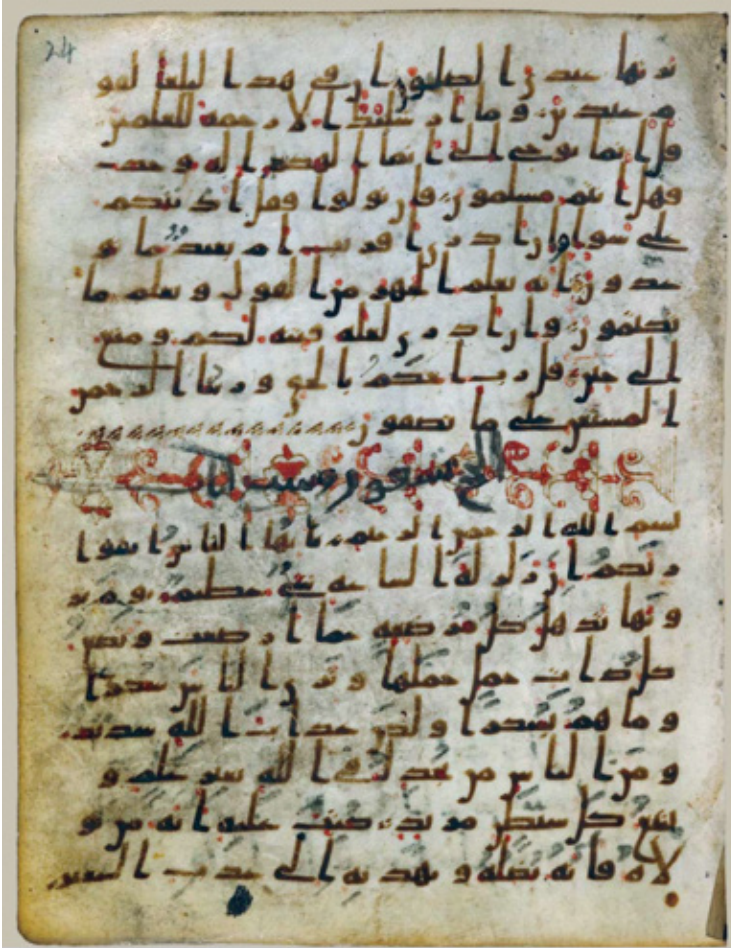 24
ثها عبدي الصلحون ان في هذا لبلغا لقو
م عبدين وما ارسلنك الا رحمة للعلمين
قل انما يوحى الي انما الهكم اله وحد
فهل انتم مسلمون فان تولوا فقل اذنتكم
على سوا وان ادري اقريب ام بعيد ما تو
عدون انه يعلم الجهر من القول ويعلم ما
تكتمون وان ادري لعله فتنة لكم ومتع
الى حين قل رب احكم بالحق وربنا الرحمن
المستعن على ما تصفون
الحج سبعون وست ايات
بسم الله الرحمن الرحيم يايها الناس اتقوا
ربكم ان زلزلة الساعة شي عظيم يوم تر
ونها تذهل كل مرضعة عما ارضعت وتضع
كل ذات حمل حملها وترى الناس سكرى
وما هم بسكرى ولكن عذاب الله شديد
ومن الناس من يجدل في الله بغير علم و
يتبع كل شيطن مريد كتب عليه انه من تو
لاه فانه يضله ويهديه الى عذاب السعير